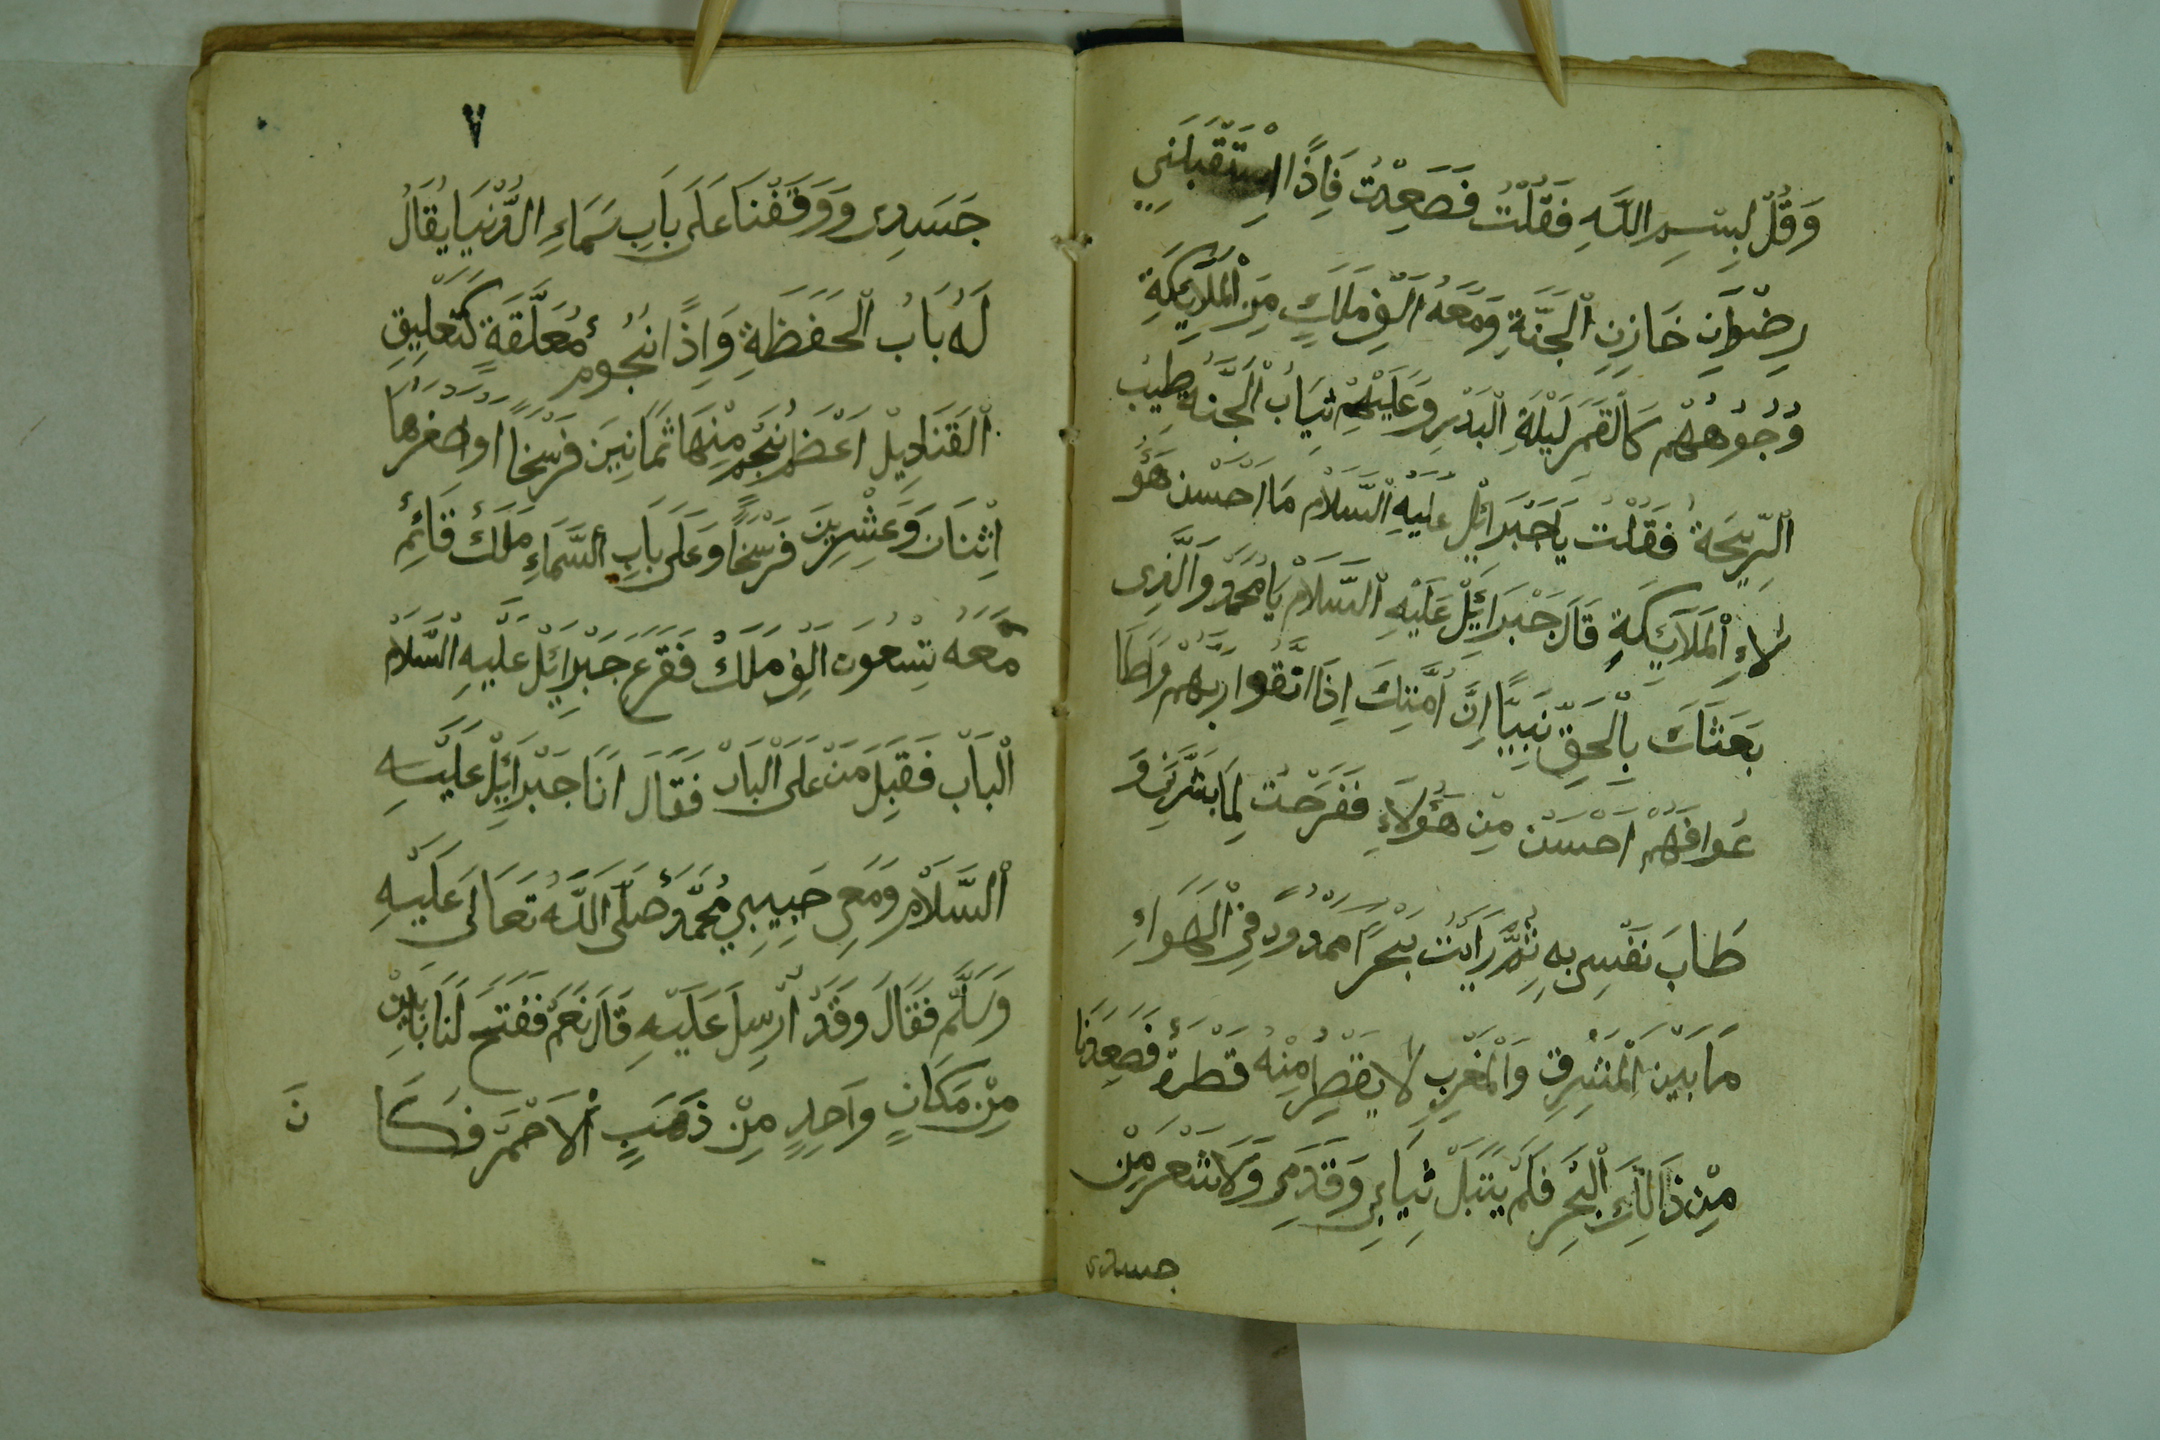 وَقُلْ لِبِسْمِ اللَّهِ فَقُلْتُ فَصَعِدْتُ فَاِذًا اِسْتَقْبَلَنِي
رِضْوَانِ خَازِنِ الْجَنَّةِ وَمَعَهُ اَلْفِ مَلَكٍ مِنَ الْمَلَائِكَةِ
وُجُوهُهُمْ كَالْقَمَرِ لَيْلَةِ الْبَدْرِ وَعَلَيْهِمْ ثِيَابُ الْجَنَّةِ طِيبُ
الرِّيحَةُ فَقُلْتُ يَا جَبْرَائِلِ عَلَيْهِ السَّلَامْ مَا اَحْسَنَ هَؤُ
لَاءِ الْمَلَائِكَةِ قَالَ جَبْرَائِلْ عَلَيْهِ السَّلَامْ يَا مُحَمَّدْ وَالَّذِى
بَعَثَكَ بِالْحَقِّ نَبِيًّا اِنَّ اُمَّتِكَ اِذَا اتَّقُوا رَبَّهُمْ وَاَطَا
عُوا فَهُمْ اَحْسَنْ مِنْ هَؤُلَاءِ فَفَرَحْتُ لِمَا بَشَّرَنِى وَ
طَابَ نَفْسِى بِهِ ثُمَّ رَاَيْتُ بَحْرًا ممدُودٌ فِي الْهَوَاءِ
مَا بَيْنَ الْمَشْرِقِ وَالْمَغْرِبِ لَا يَقْطُرُ مِنْهُ قَطْرَةٌ فَصَعِدْنَا
مِنْ ذَالِكَ الْبَحْرِ فَلَمْ يَبْتَلْ ثِيَابِى وَقَدَمِى وَلَا شَعْرَ مِنْ
جسدى
٧
جَسَدِى وَوَقَفْنَا عَلَى بَابِ سَمَاءِ الدُّنْيَا يُقَالُ
لَهُ بَابُ الْحَفَظَةِ وَاِذًا نُجُومٌ مُعَلَّقَةٍ كَتَعْلِيقِ
الْقَنَادِيلْ اَعْظَمُ نَجْمٍ مِنْهَا ثَمَانِينَ فَرْسَخًا اوصْغَرُهَا
اِثْنَانَ وَعِشْرِينَ فَرْسَخًا وَعَلَى بَابِ السَّمَاءِ مَلَكٌ قَائِمٌ
مَعَهُ تِسْعُونَ اَلْفِ مَلَكْ فَقَرَعَ جَبْرَائِلْ عَلَيْهِ السَّلَامْ
الْبَابْ فَقِيلَ مَنْ عَلَى الْبَابْ فَقَالَ اَنَا جَبْرَائِلْ عَلَيْهِ
السَّلَامْ وَمَعِى حَبِيبِي مُحَمَّدْ صَلَّى اللَّهُ تَعَالَى عَلَيْهِ
وَسَلَّمَ فَقَالَ وَقَدْ اُرْسِلَ عَلَيْهِ قَالَ نَعَمْ فَفُتِحَ لَنَا بَابَيْنِ
مِنْ مَكَانٍ وَاحِدٍ مِنْ ذَهَبٍ الْاَحْمَرْ فَكَا
نَ